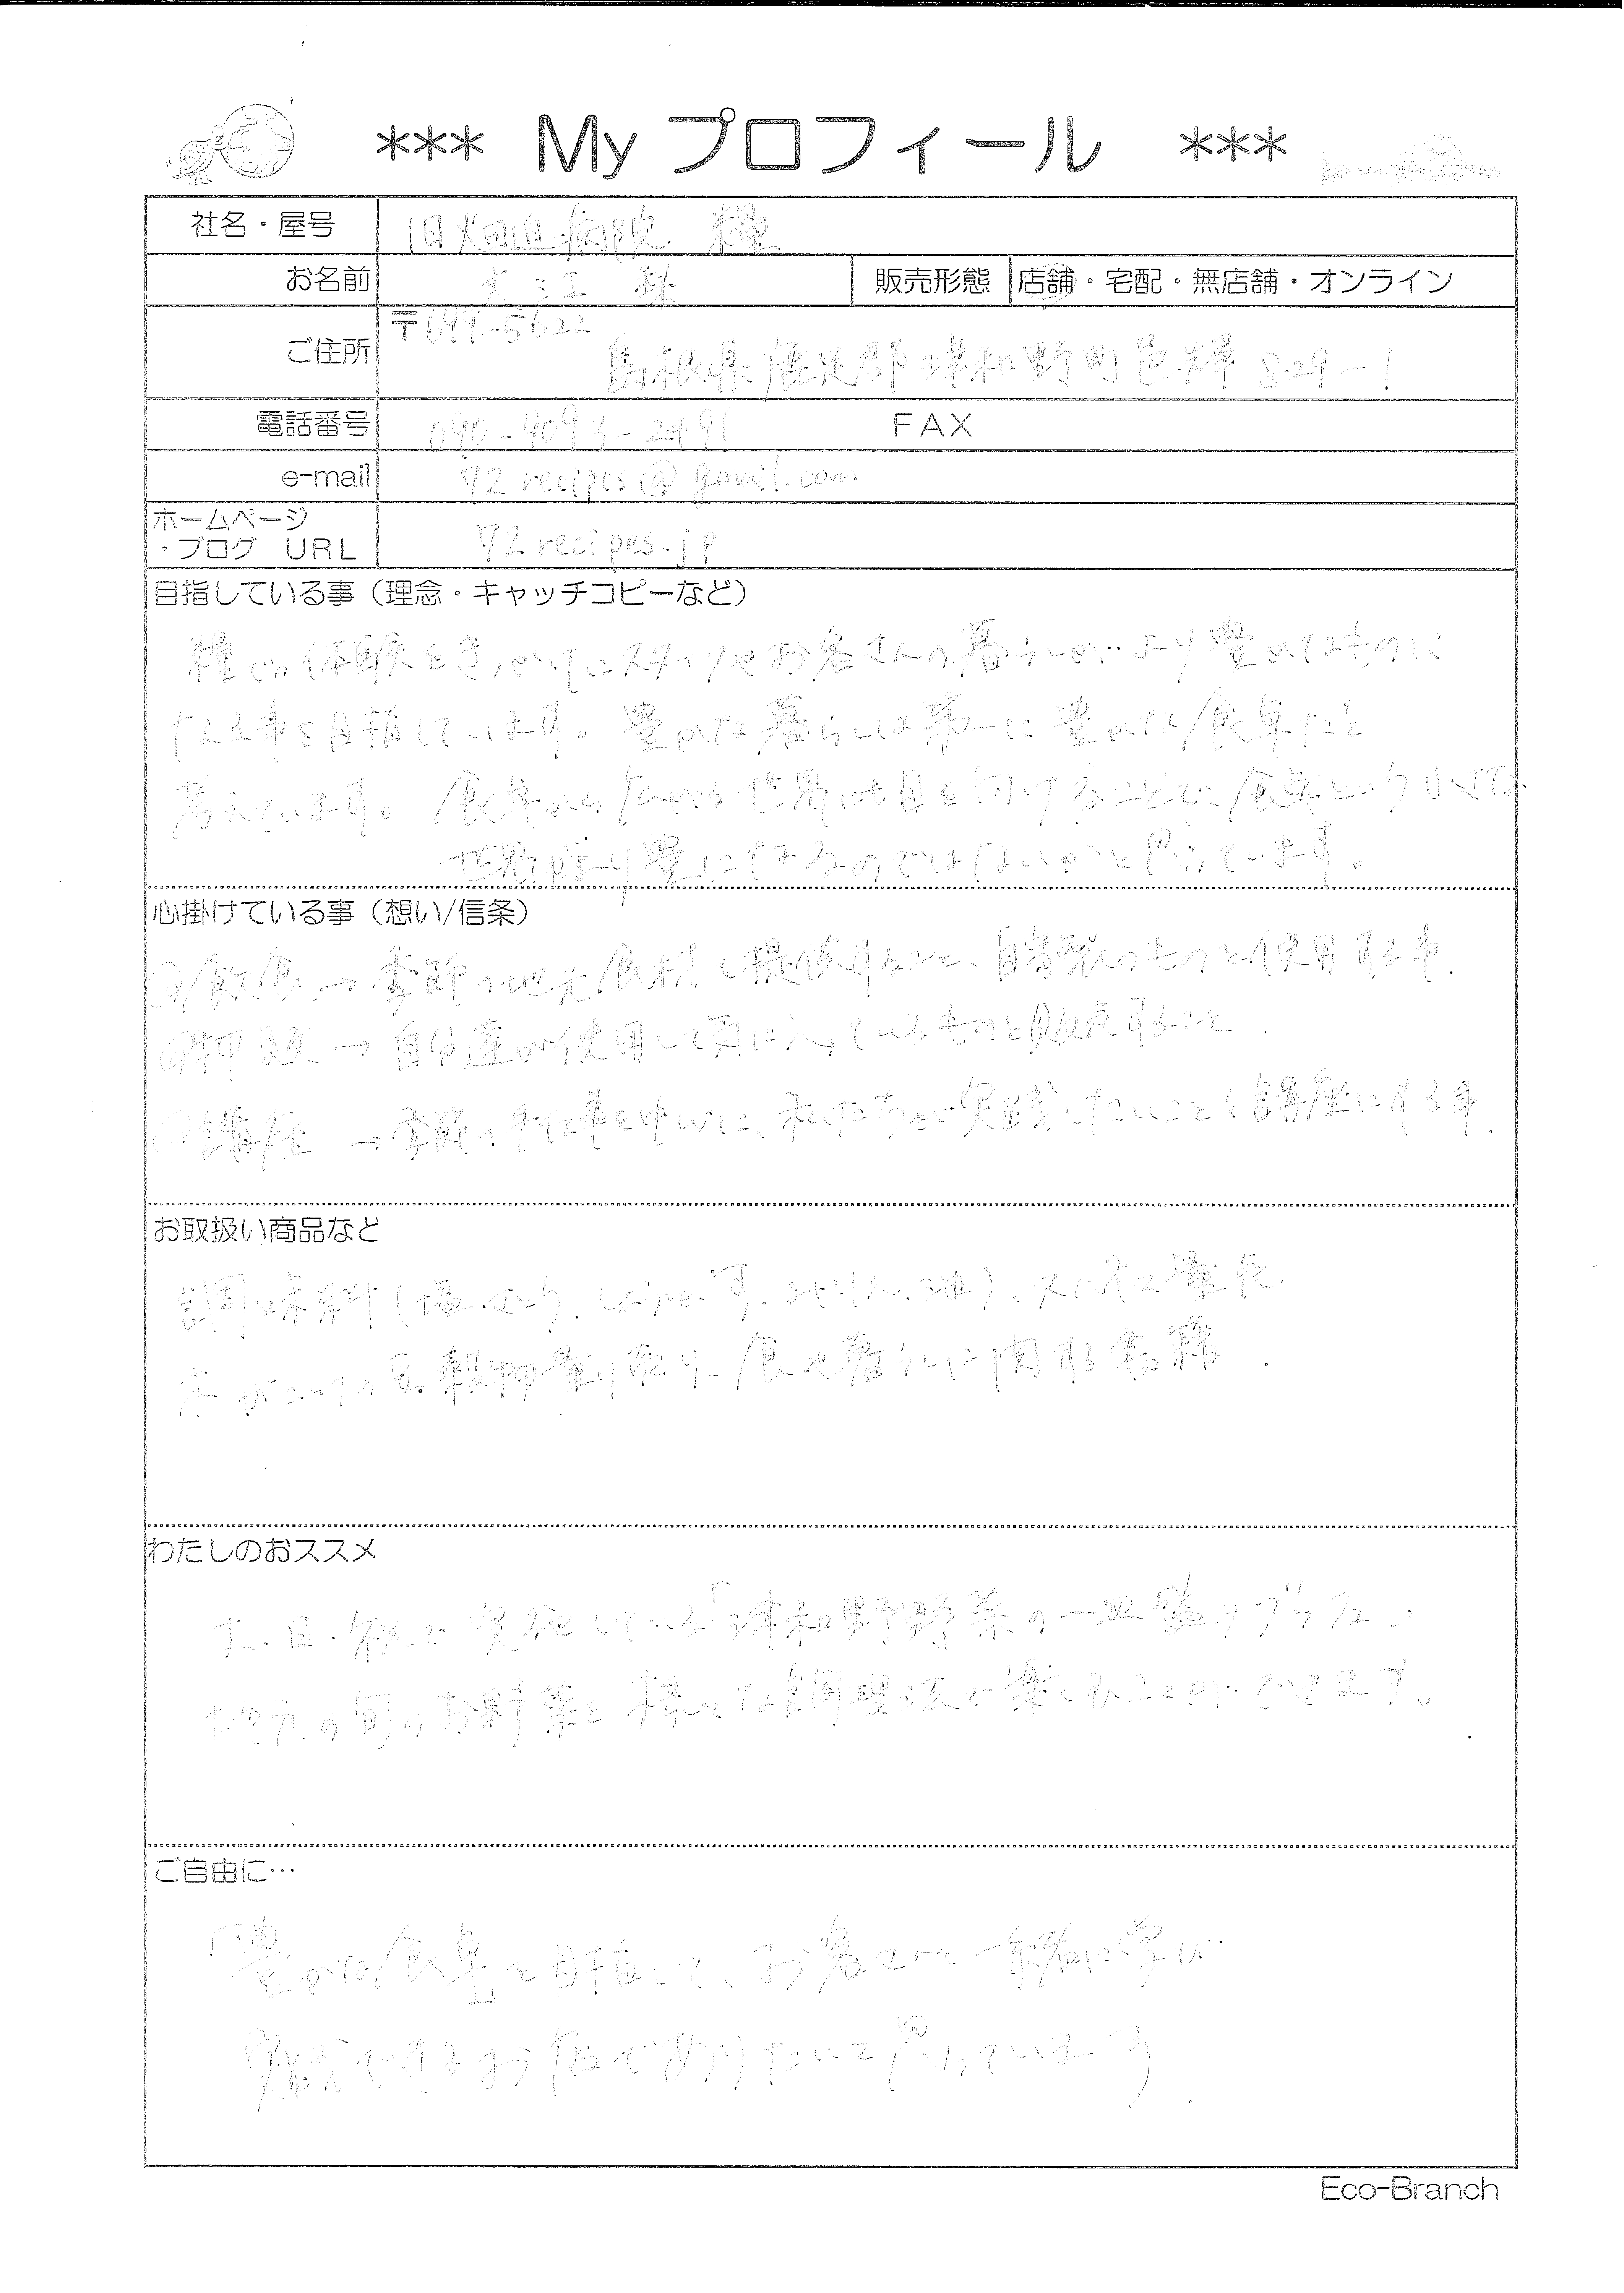 *** My プロフィール ***
社名・屋号 旧畑迫病院 糧
お名前 大江 販売形態 店舗・宅配・無店舗・オンライン
ご住所 〒699-5622
島根県鹿足郡津和野町邑輝 829-1
電話番号 090-9093-2491 FAX
e-mail 72recipes@gmail.com
ホームページ
・ブログ URL 72recipes.jp
目指している事（理念・キャッチコピーなど）
糧での体験をきっかけにスタッフやお客さんの暮らしが、より豊かなものに
なる事を目指しています。豊かな暮らしは第一に豊かな食卓だと
考えています。食卓からつながる世界にも目を向けることで、食卓という
世界がより豊になるのではないかと思っています。
心掛けている事（想い/信条）
○飲食→季節の地元食材を提供すること、自家製のものを使用する事.
○物販→自分達が使用して気に入っているものを販売すること.
○講座→季節の手仕事を中心に、私たちが実践したいことを講座にする事.
お取扱い商品など
調味料(塩.さとう.しょうゆ.す.みりん.油)、スパイス量売
オーガニックの豆.穀物量り売り、食や暮らしに関する書籍.
わたしのおススメ
土・日・祝に実施している「津和野野菜の一皿盛りブッフェ」
地元の旬のお野菜を様々な調理法で楽しむことができます。
ご自由に…
「豊かな食卓」を目指して、お客さんと一緒に学び
実践できるような店でありたいと思っています.
Eco-Branch